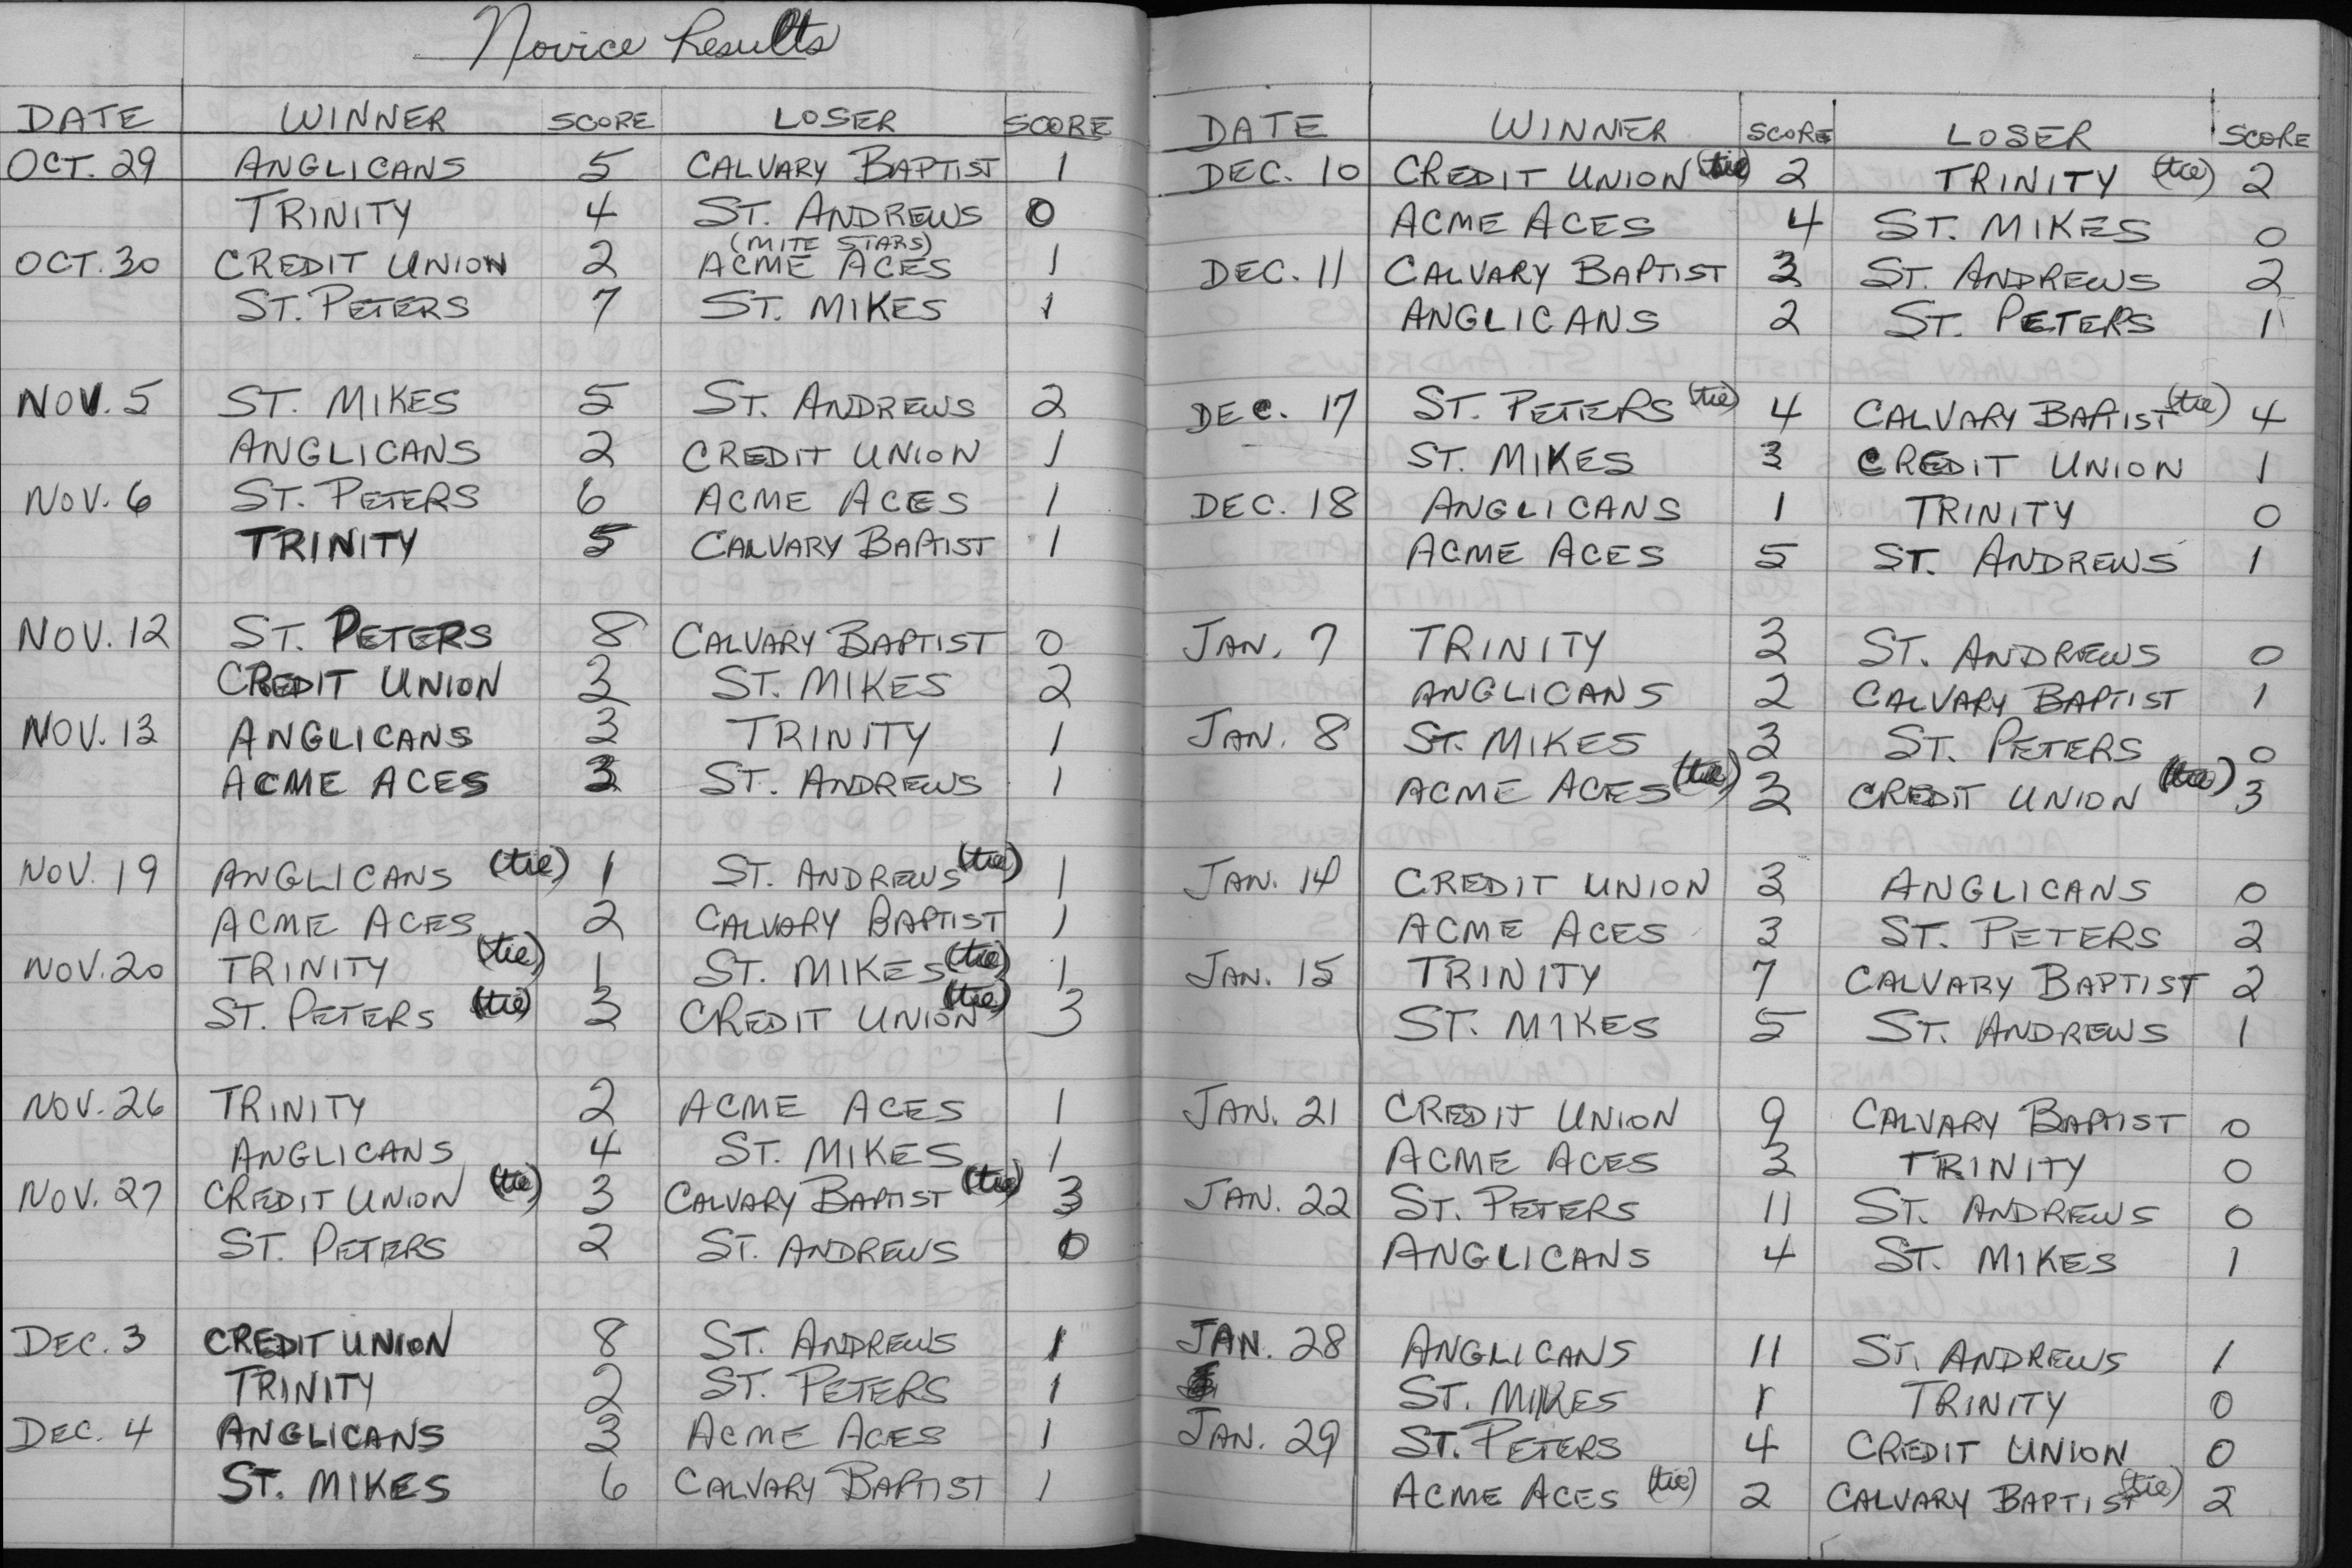 Novice Results
DATE WINNER SCORE LOSER SCORE
OCT. 29 ANGLICANS 5 CALVARY BAPTIST 1
TRINITY 4 ST. ANDREWS 0
(MITE STARS)
OCT. 30 CREDIT UNION 2 ACME ACES 1
ST. PETERS 7 ST. MIKES 1
NOV. 5 ST. MIKES 5 ST. ANDREWS 2
ANGLICANS 2 CREDIT UNION 1
NOV. 6 ST. PETERS 6 ACME ACES 1
TRINITY 5 CALVARY BAPTIST 1
NOV. 12 ST. PETERS 8 CALVARY BAPTIST 0
CREDIT UNION 3 ST. MIKES 2
NOV. 13 ANGLICANS 3 TRINITY 1
ACME ACES 3 ST. ANDREWS 1
NOV. 19 ANGLICANS (tie) 1 ST. ANDREWS (tie) 1
ACME ACES 2 CALVARY BAPTIST 1
NOV. 20 TRINITY (tie) 1 ST. MIKES (tie) 1
ST. PETERS (tie) 3 CREDIT UNION (tie) 3
NOV. 26 TRINITY 2 ACME ACES 1
ANGLICANS 4 ST. MIKES 1
NOV. 27 CREDIT UNION (tie) 3 CALVARY BAPTIST (tie) 3
ST. PETERS 2 ST. ANDREWS 0
DEC. 3 CREDIT UNION 8 ST. ANDREWS 1
TRINITY 2 ST. PETERS 1
DEC. 4 ANGLICANS 3 ACME ACES 1
ST. MIKES 6 CALVARY BAPTIST 1
DATE WINNER SCORE LOSER SCORE
DEC. 10 CREDIT UNION (tie) 2 TRINITY (tie) 2
ACME ACES 4 ST. MIKES 0
DEC. 11 CALVARY BAPTIST 3 ST. ANDREWS 2
ANGLICANS 2 ST. PETERS 1
DEC. 17 ST. PETERS (tie) 4 CALVARY BAPTIST (tie) 4
ST. MIKES 3 CREDIT UNION 1
DEC. 18 ANGLICANS 1 TRINITY 0
ACME ACES 5 ST. ANDREWS 1
JAN. 7 TRINITY 3 ST. ANDREWS 0
ANGLICANS 2 CALVARY BAPTIST 1
JAN. 8 ST. MIKES 3 ST. PETERS 0
ACME ACES (tie) 3 CREDIT UNION (tie) 3
JAN. 14 CREDIT UNION 3 ANGLICANS 0
ACME ACES 3 ST. PETERS 2
JAN. 15 TRINITY 7 CALVARY BAPTIST 2
ST. MIKES 5 ST. ANDREWS 1
JAN. 21 CREDIT UNION 9 CALVARY BAPTIST 0
ACME ACES 3 TRINITY 0
JAN. 22 ST. PETERS 11 ST. ANDREWS 0
ANGLICANS 4 ST. MIKES 1
JAN. 28 ANGLICANS 11 ST. ANDREWS 1
ST. MIKES 1 TRINITY 0
JAN. 29 ST. PETERS 4 CREDIT UNION 0
ACME ACES (tie) 2 CALVARY BAPTIST (tie) 2